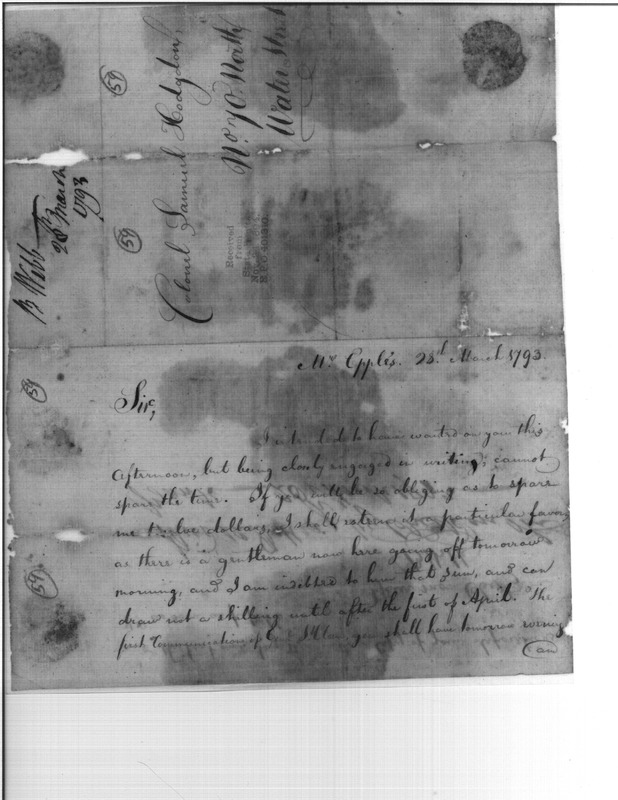 59
Colonel Samuel Hodgdon,
No. 70. North
Water Street
59
B Webb
23d March
1793
Received
from
59
Mr. Epple's. 23d. March 1793.
Sir,
I intended to have waited on you this
afternoon, but being closely engaged in writing, cannot
spare the time. If you will be so obliging as to spare
me twelve dollars, I shall esteem it a particular favor
as there is a gentleman now here going off tomorrow
morning, and I am indebted to him that sum, and can
draw not a shilling until after the first of April. The
first Communication of you shall have tomorrow
59
I am